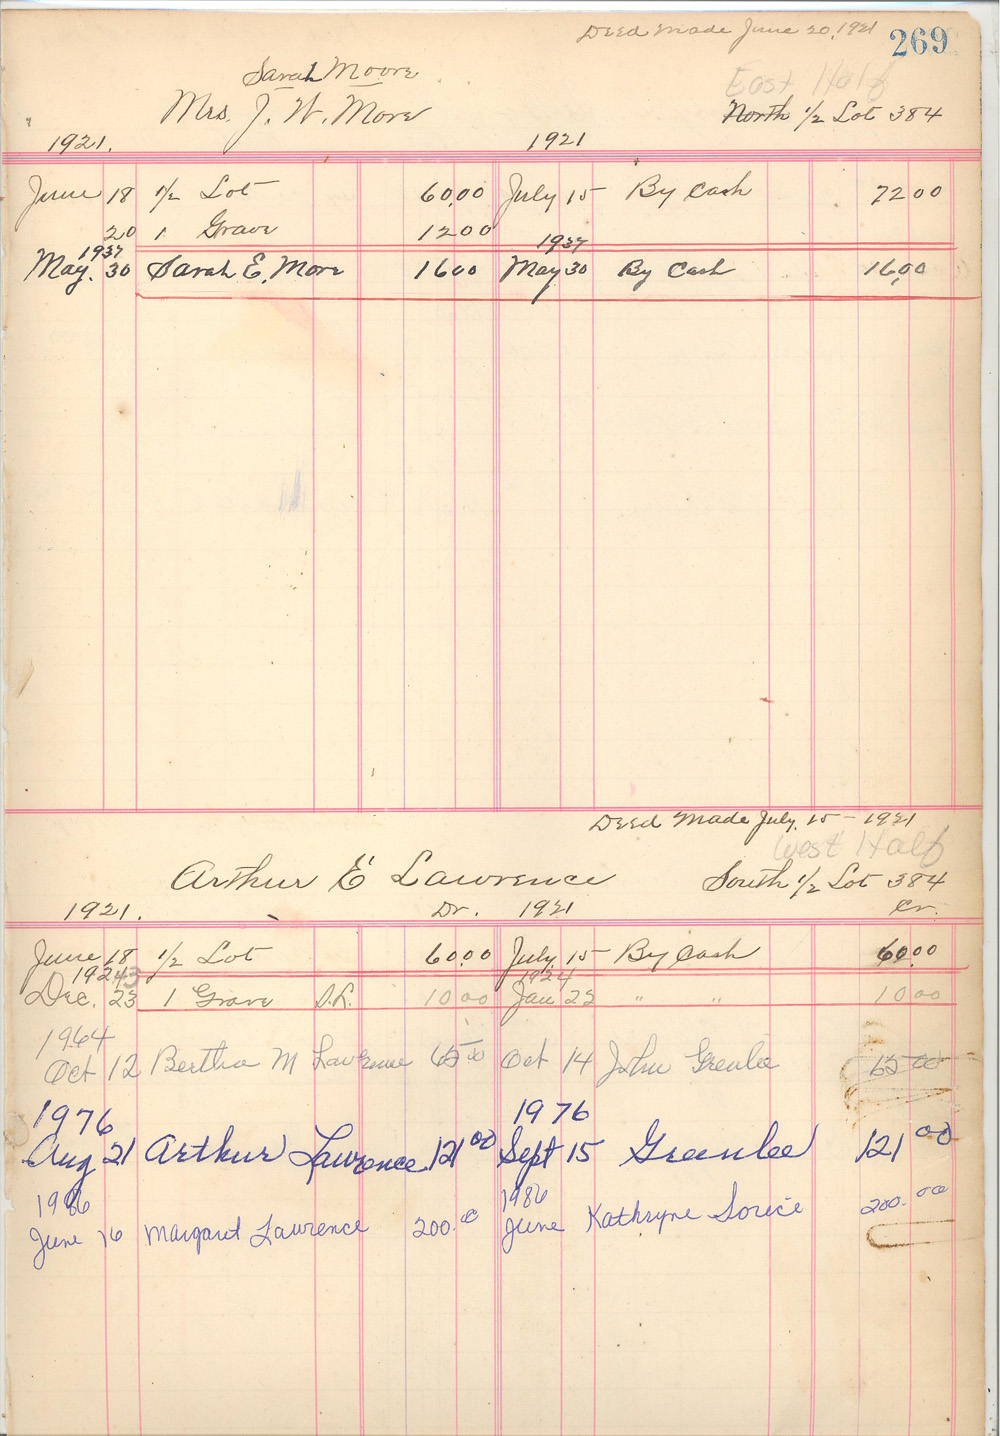 Deed Made June 20, 1921
269
Sarah Moore
East Half
Mrs. J. W. More
North 1/2 Lot 384
1921. 1921
June 18 1/2 Lot 60.00 July 15 By Cash 72 00
20 1 Grave 12 00
1937 1937
May. 30 Sarah E. More 16 00 May 30 By Cash 16.00
Deed Made July. 15 - 1921
West Half
Arthur E Lawrence South 1/2 Lot 384
1921. Dr. 1921 Cr.
June 18 1/2 Lot 60.00 July. 15 By Cash 60.00
1924
Dec. 23 1 Grave 10 00 Jan 22 " " 10 00
1964
Oct 12 Bertha M Lawrence 65 00 Oct 14 John Greenlee 65 00
1976 1976
Aug 21 Arthur Lawrence 121 00 Sept 15 Greenlee 121 00
1986 1986
June 16 Margaret Lawrence 200. June Kathryne 200. 00